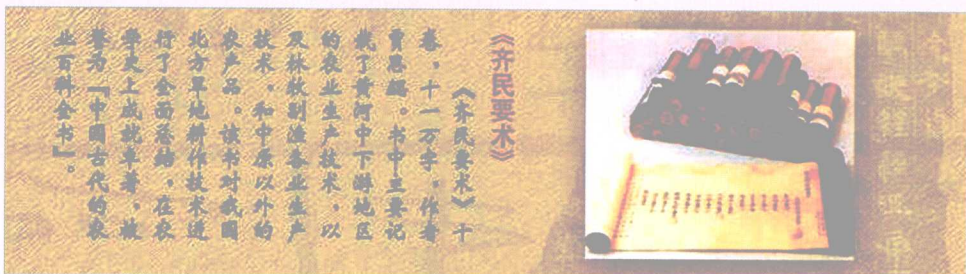 《齐民要术》
《齐民要术》十
卷，十一万字，作者
贾思勰。书中主要记
载了黄河中下游地区
的农业生产技术，以
及林牧副渔各业生产
技术，和中原以外的
农产品。该书对我国
北方旱地耕作技术进
行了全面总结，在农
学史上成就卓著，被
誉为『中国古代的农
业百科全书』。